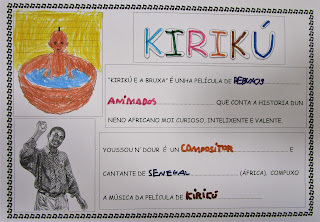 KIRIKÚ
"KIRIKÚ E A BRUXA" É UNHA PELÍCULA DE DEBUXOS
ANIMADOS QUE CONTA A HISTORIA DUN
NENO AFRICANO MOI CURIOSO, INTELIXENTE E VALENTE.
YOUSSOU N'DOUR É UN COMPOSITOR E
CANTANTE DE SENEGAL (ÁFRICA). COMPUXO
A MÚSICA DA PELÍCULA DE KIRIKÚ